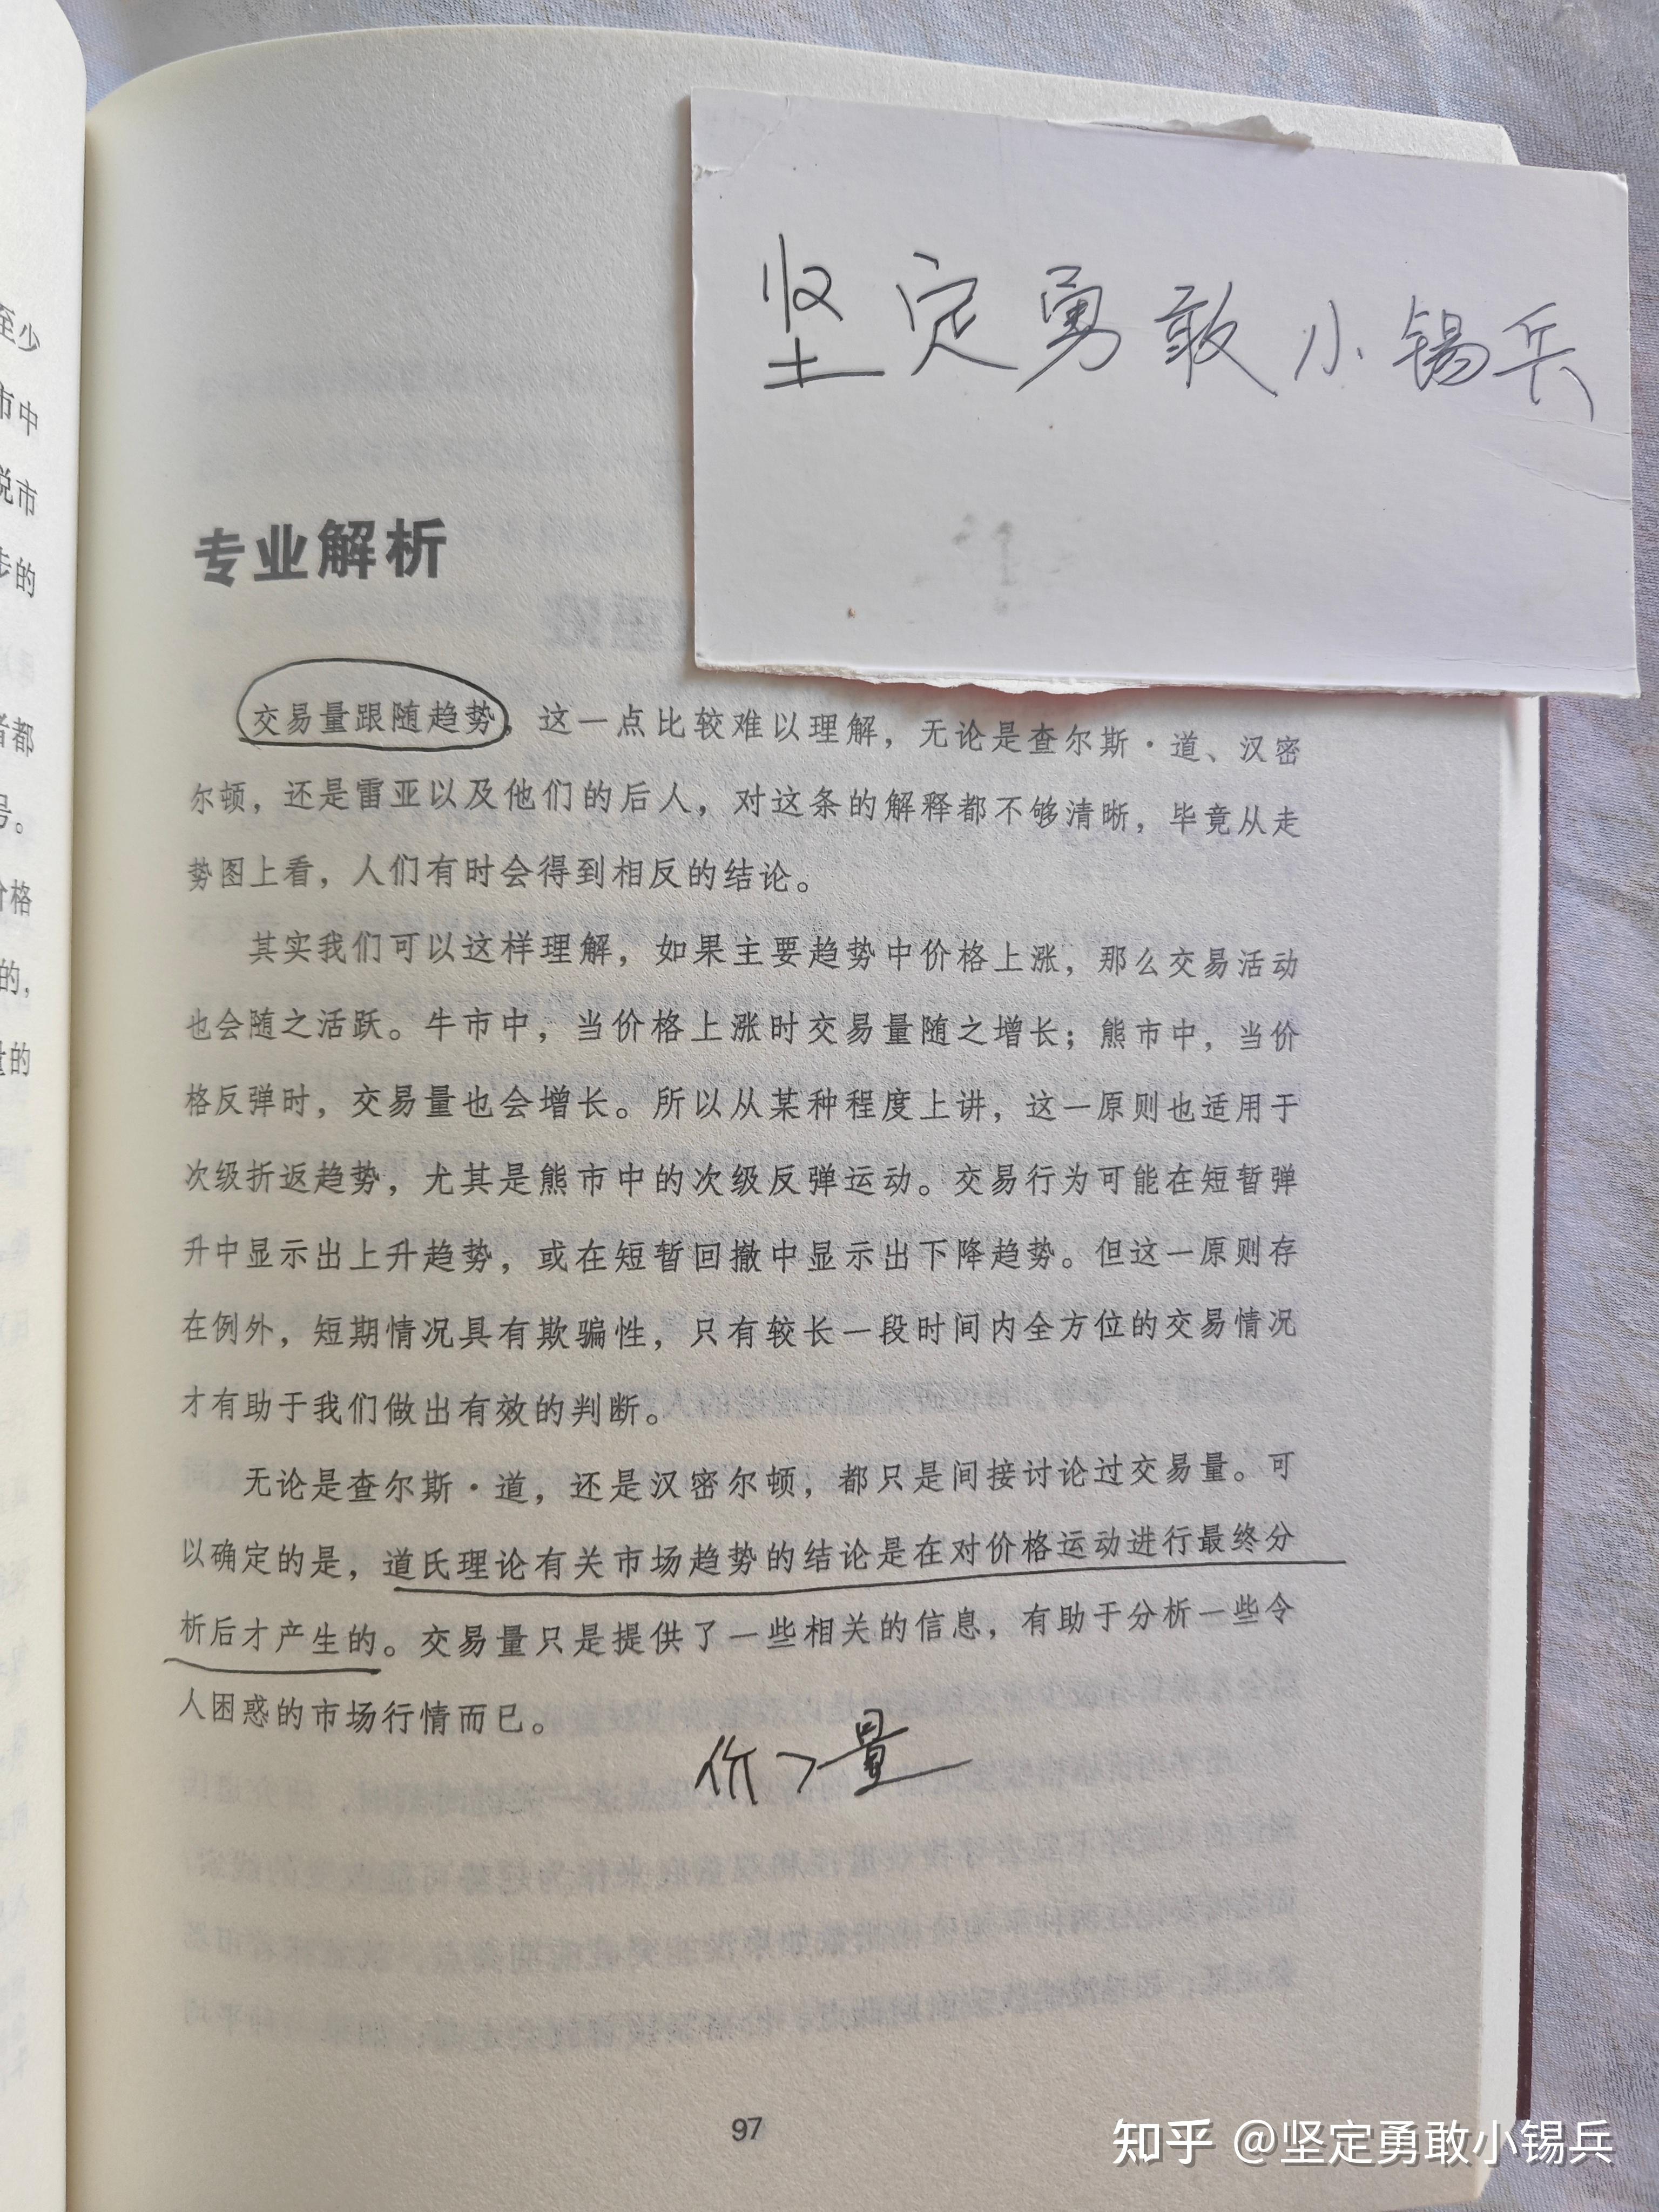 坚定勇敢小锡兵
至少
市中
说市
步的
者都
号。
价格
的，
量的
专业解析
交易量跟随趋势，这一点比较难以理解，无论是查尔斯·道、汉密
尔顿，还是雷亚以及他们的后人，对这条的解释都不够清晰，毕竟从走
势图上看，人们有时会得到相反的结论。
其实我们可以这样理解，如果主要趋势中价格上涨，那么交易活动
也会随之活跃。牛市中，当价格上涨时交易量随之增长；熊市中，当价
格反弹时，交易量也会增长。所以从某种程度上讲，这一原则也适用于
次级折返趋势，尤其是熊市中的次级反弹运动。交易行为可能在短暂弹
升中显示出上升趋势，或在短暂回撤中显示出下降趋势。但这一原则存
在例外，短期情况具有欺骗性，只有较长一段时间内全方位的交易情况
才有助于我们做出有效的判断。
无论是查尔斯·道，还是汉密尔顿，都只是间接讨论过交易量。可
以确定的是，道氏理论有关市场趋势的结论是在对价格运动进行最终分
析后才产生的。交易量只是提供了一些相关的信息，有助于分析一些令
人困惑的市场行情而已。
价>量
97
知乎 @坚定勇敢小锡兵